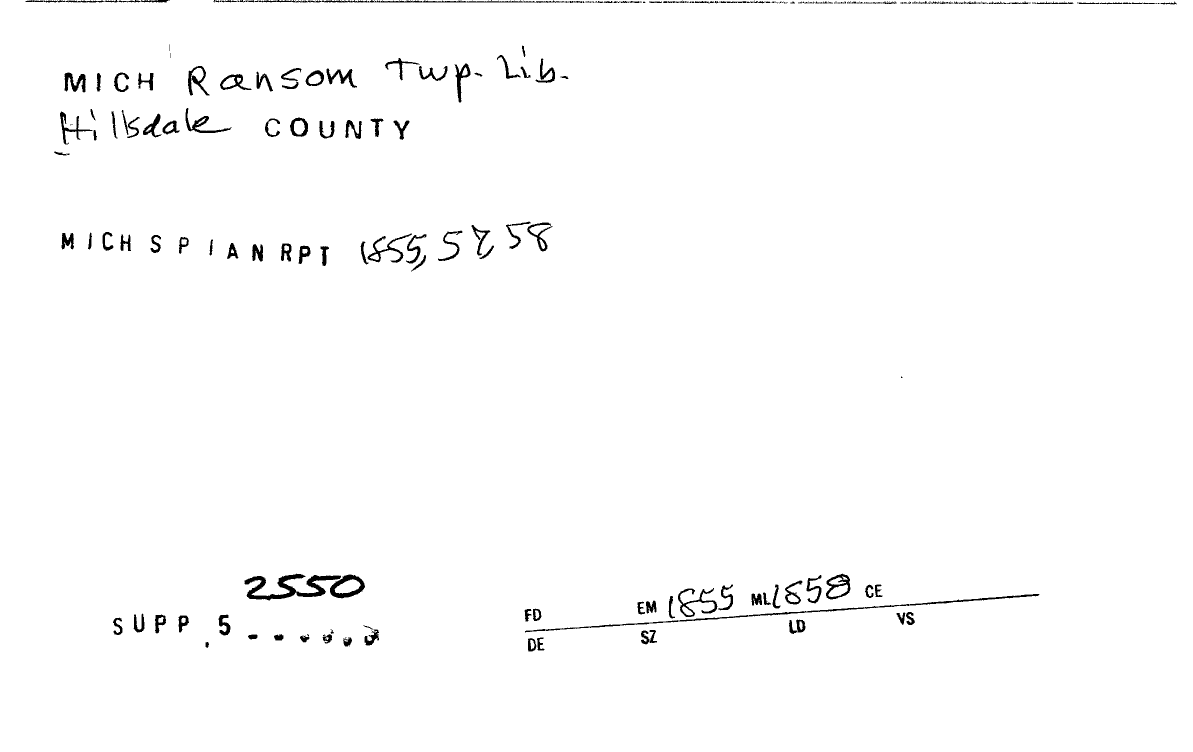 MICH Ransom Twp. Lib.
Hillsdale COUNTY
MICH S P I AN RPT 1855, 57, 58
2550
SUPP. 5
FD EM 1855 ML 1858 CE
DE SZ LD VS